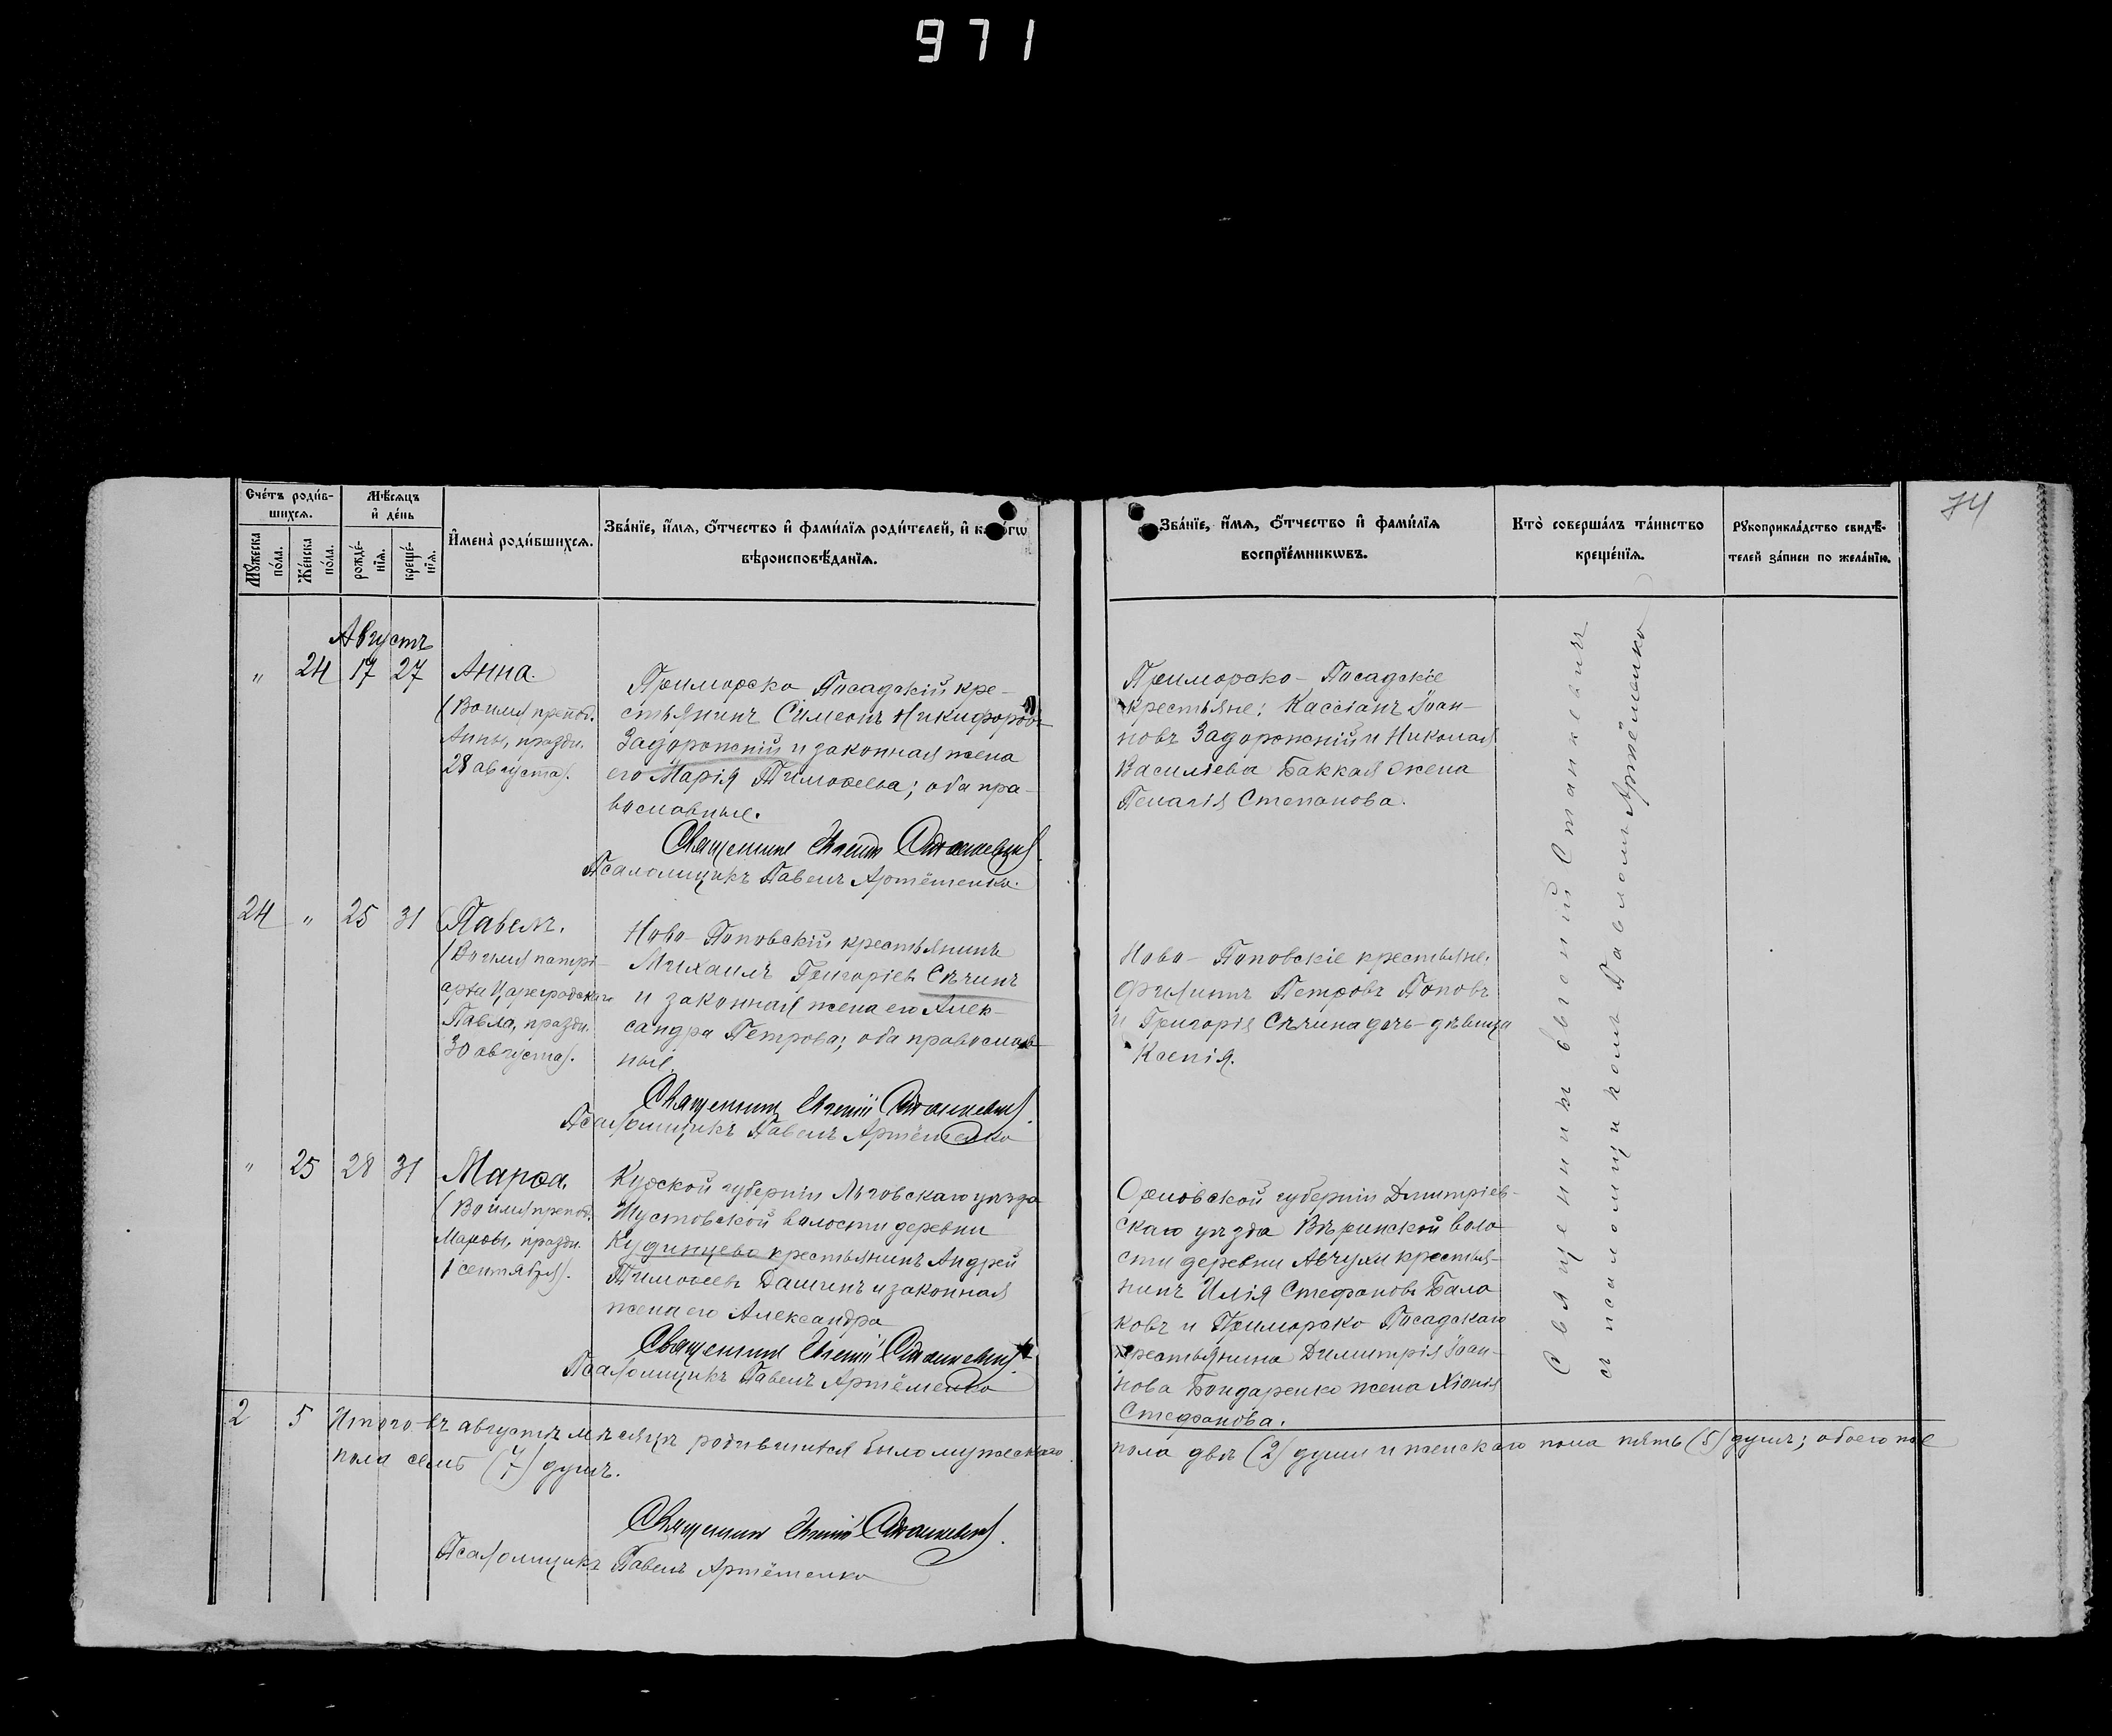 971
74
Счетъ родив-
шихся.
Мѣсяцъ
и день
Мужеска
пола.
Женска
пола.
рожде-
нія.
креще-
нія.
Имена родившихся.
Званіе, имя, отчество и фамилія родителей, и
вѣроисповѣданія.
Званіе, имя, отчество и фамилія
воспріемниковъ.
Кто совершалъ таинство
крещенія.
Рукоприкладство свидѣ-
телей записи по желанію.
Августъ
„ 24 17 27
Анна.
(Во имя препод.
Анны, праздн.
28 августа).
Приморско-Посадскій кре-
стьянинъ Симеонъ Никифоровъ
Задорожній и законная жена
его Марія Тимоѳеева; оба пра-
вославные.
Священникъ Евгеній Станкевичъ.
Псаломщикъ Павелъ Артёменко.
Приморско-Посадскіе
крестьяне: Кассіанъ Іоан-
новъ Задорожній и Николая
Василіева Баккая жена
Пелагія Степанова.
24 „ 25 31
Павелъ.
(Во имя патрі-
арха Цареградскаго
Павла, праздн.
30 августа).
Ново-Поповскій крестьянинъ
Михаилъ Григоріевъ Сѣчинъ
и законная жена его Алек-
сандра Петрова; оба православ-
ные.
Священникъ Евгеній Станкевичъ.
Псаломщикъ Павелъ Артёменко
Ново-Поповскіе крестьяне:
Филиппъ Петровъ Поповъ
и Григорія Сѣчина дочь-дѣвица
Ксенія.
„ 25 28 31
Марѳа.
(Во имя препод.
Марѳы, праздн.
1 сентября).
Курской губерніи Льговскаго уѣзда
Шустовской волости деревни
Кудинцево крестьянинъ Андрей
Тимоѳеевъ Дашинъ и законная
жена его Александра
Священникъ Евгеній Станкевичъ.
Псаломщикъ Павелъ Артёменко
Орловской губерніи Дмитріев-
скаго уѣзда волo-
сти деревни крестья-
нинъ Илія Стефановъ Бала-
ковъ и Приморско Посадскаго
крестьянина Димитрія Іоан-
нова Бондаренко жена Хіонія
Стефанова.
Священникъ Евгеній Станкевичъ
съ псаломщикомъ Павломъ Артёменко
2 5 Итого въ августѣ мѣсяцѣ родившихся было мужескаго
пола двѣ (2) души и женскаго пола пять (5) душъ; обоего пое
пола семь (7) душъ.
Священникъ Евгеній Станкевичъ.
Псаломщикъ Павелъ Артёменко